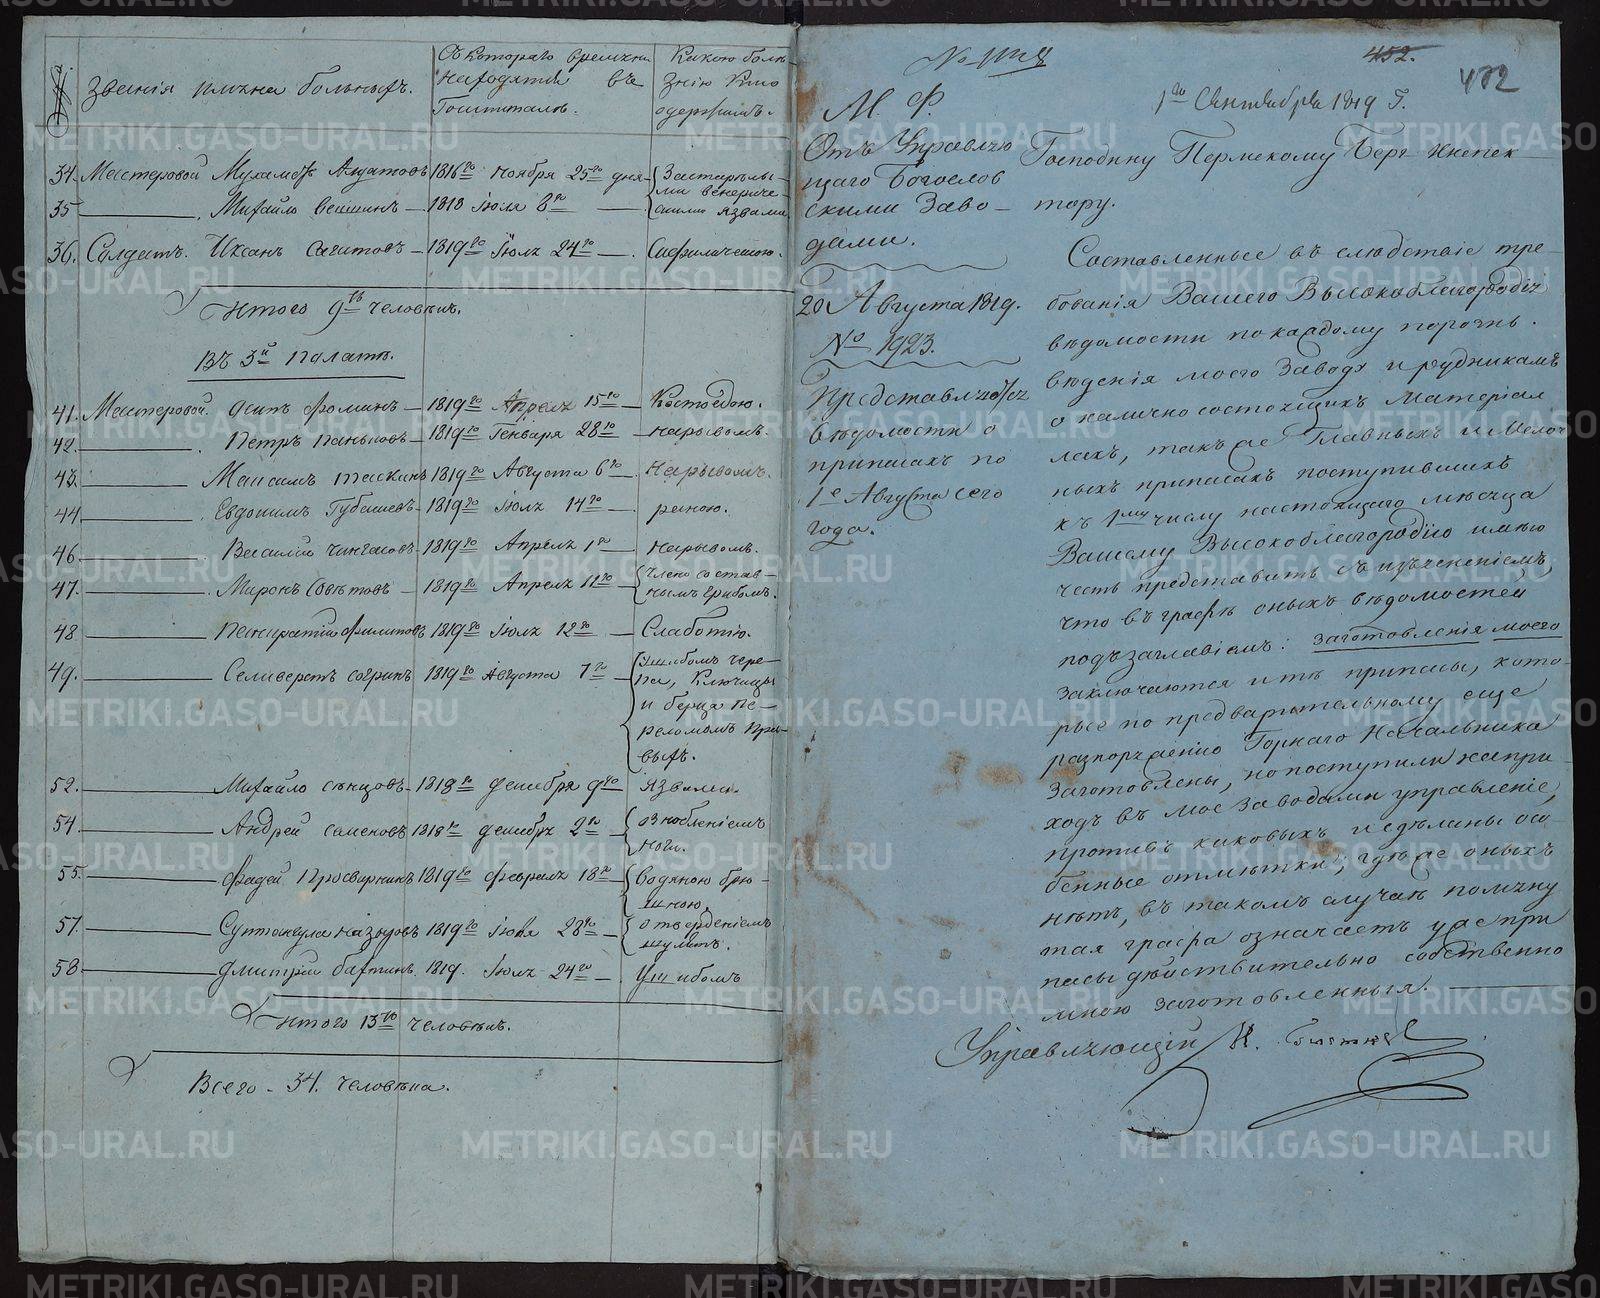 Званія имяна больныхъ.
Съ котораго времяни находятся въ Гошпиталѣ.
Какою болѣзнію кто одержимъ.
34. Мастеровой Мухаметъ 1816го Ноября 25го дня Застарѣлыми венерическими язвами
35 Михайло Вешнинъ 1818 Іюля 8го
36. Солдатъ. Ихсанъ Сагитовъ 1819го Іюля 24го Сифилическою.
Итого 9ть человѣкъ.
Въ 3й палатѣ.
41. Мастеровой. Осипъ Фоминъ 1819го Апреля 15го Костоѣдою.
42. Петръ Паньковъ 1819го Генваря 28го нарывомъ.
43. Максимъ Таскинъ 1819го Августа 6го Нарывомъ.
44 Евдокимъ Губашевъ 1819го Іюля 14го раною.
46 Василій 1819го Апреля 1го нарывомъ.
47. Миронъ Совѣтовъ 1819го Апреля 11го Членосоставнымъ грибомъ.
48 Панкратій Филиповъ 1819го Іюля 12го Слаботію.
49. Селиверстъ Согринъ 1819го Августа 7го Ушибомъ черепа, ключицы и берца переломомъ
52. Михайло Сѣнцовъ 1818го декабря 9го Язвами.
54 Андрей Семеновъ 1818го декабря 2го ознобленіемъ ноги.
55. Фадей Просвирнинъ 1819го февраля 18го Водяною брюшною.
57. Назыровъ 1819го Іюня 28го отвердѣніемъ шулятъ.
58 Дмитрій Бахтинъ. 1819. Іюля 24го Ушибомъ
Итого 13ть человѣкъ.
Всего - 34. человѣка.
452.
482
1го Сентября 1819 Г.
М. Ф.
Отъ Управляю
щаго Богослов
скими Заво-
дами.
20 Августа 1819.
№ 1923.
Представляютъся
вѣдомости о
припасахъ по
1е Августа сего
года.
Господину Пермскому Берг Инспек
тору.
Составленные въ слѣдствіе тре-
бованія Вашего Высокоблагородія
вѣдомости по каждому порознь
вѣденія моего Заводу и рудникамъ
о налично состоящихъ Матеріа
лахъ, такъже Главныхъ и Мелоч
ныхъ припасахъ поступившихъ
къ 1му числу настоящаго мѣсяца
Вашему Высокоблагородію имѣю
честь представить съ изъясненіемъ,
что въ графѣ оныхъ вѣдомостей
подъ заглавіемъ: заготовленія моего
заключаются и тѣ припасы, кото-
рые по предварительному еще
разпоряженію Горнаго Начальника
заготовлены, но поступили уже при
ходъ въ мое заводами управленіе,
противъ каковыхъ и сдѣланы осо-
бенные отмѣтки; гдѣже оныхъ
нѣтъ, въ такомъ случаѣ помяну
тая графа означаетъ уже при
пасы дѣйствительно собственно
мною заготовленныя.
Управляющій